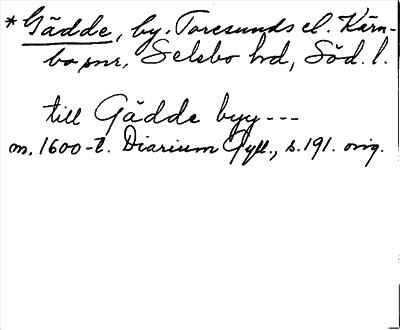 *Gädde, by. Toresunds el. Kärn-
bo snr, Selebo hd, Söd. l.
till Gädde byy ---
m. 1600-t. Diarium Gyll., s. 191. orig.